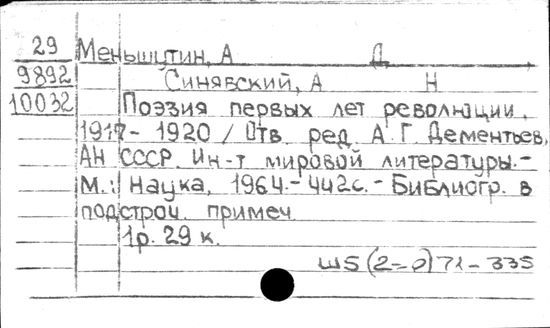 29 Меньшутин, А Д
9892 Синявский, А Н
10032 Поэзия первых лет революции.
1917-1920 / Отв. ред. А. Г. Дементьев,
АН СССР. Ин-т мировой литературы.-
М.: Наука, 1964.- 442с.- Библиогр. в
подстроч. примеч
1р. 29 к.
ш5(2=р)71-335